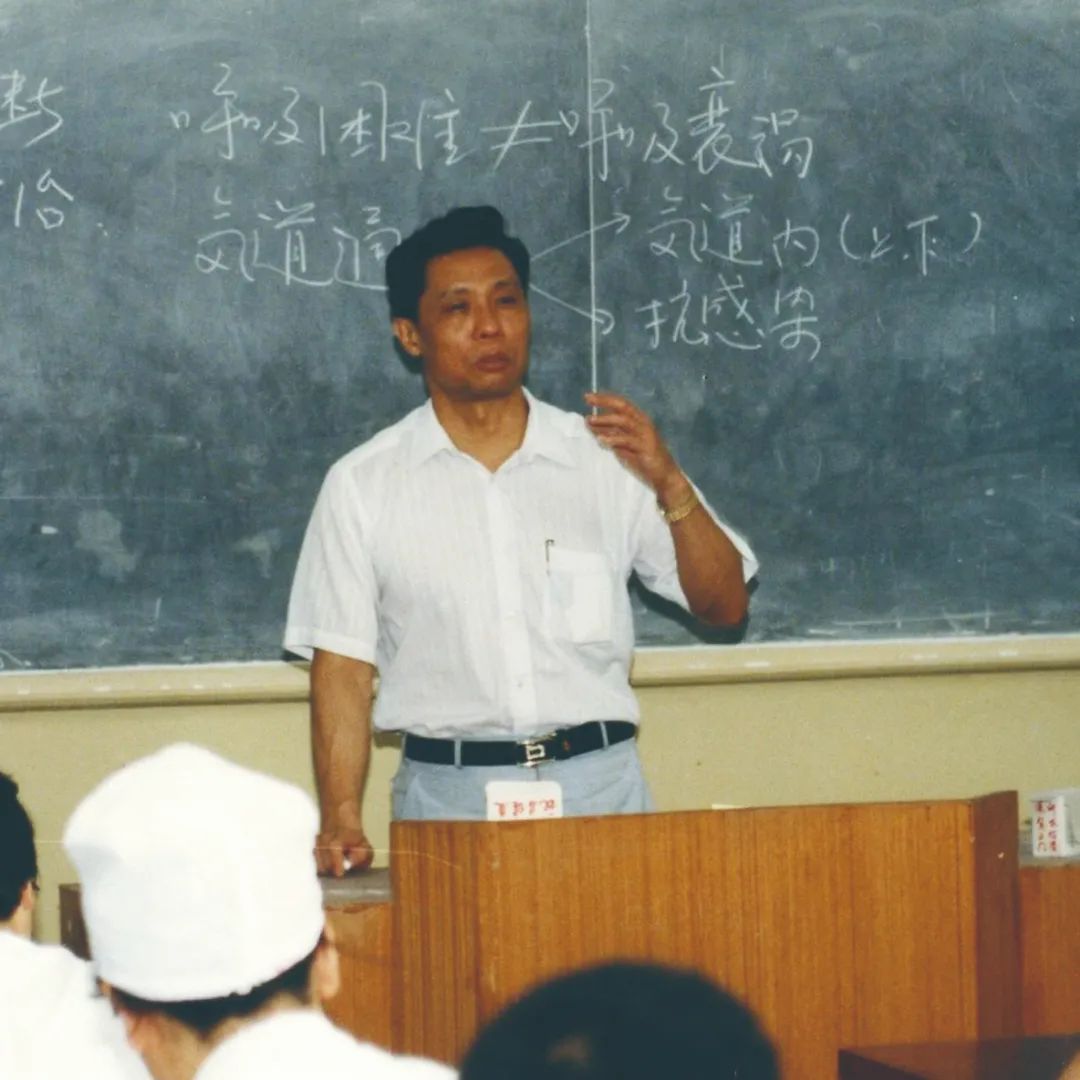 断
治.
呼吸困难≠呼吸衰竭
气道通
气道内(上.下)
抗感染